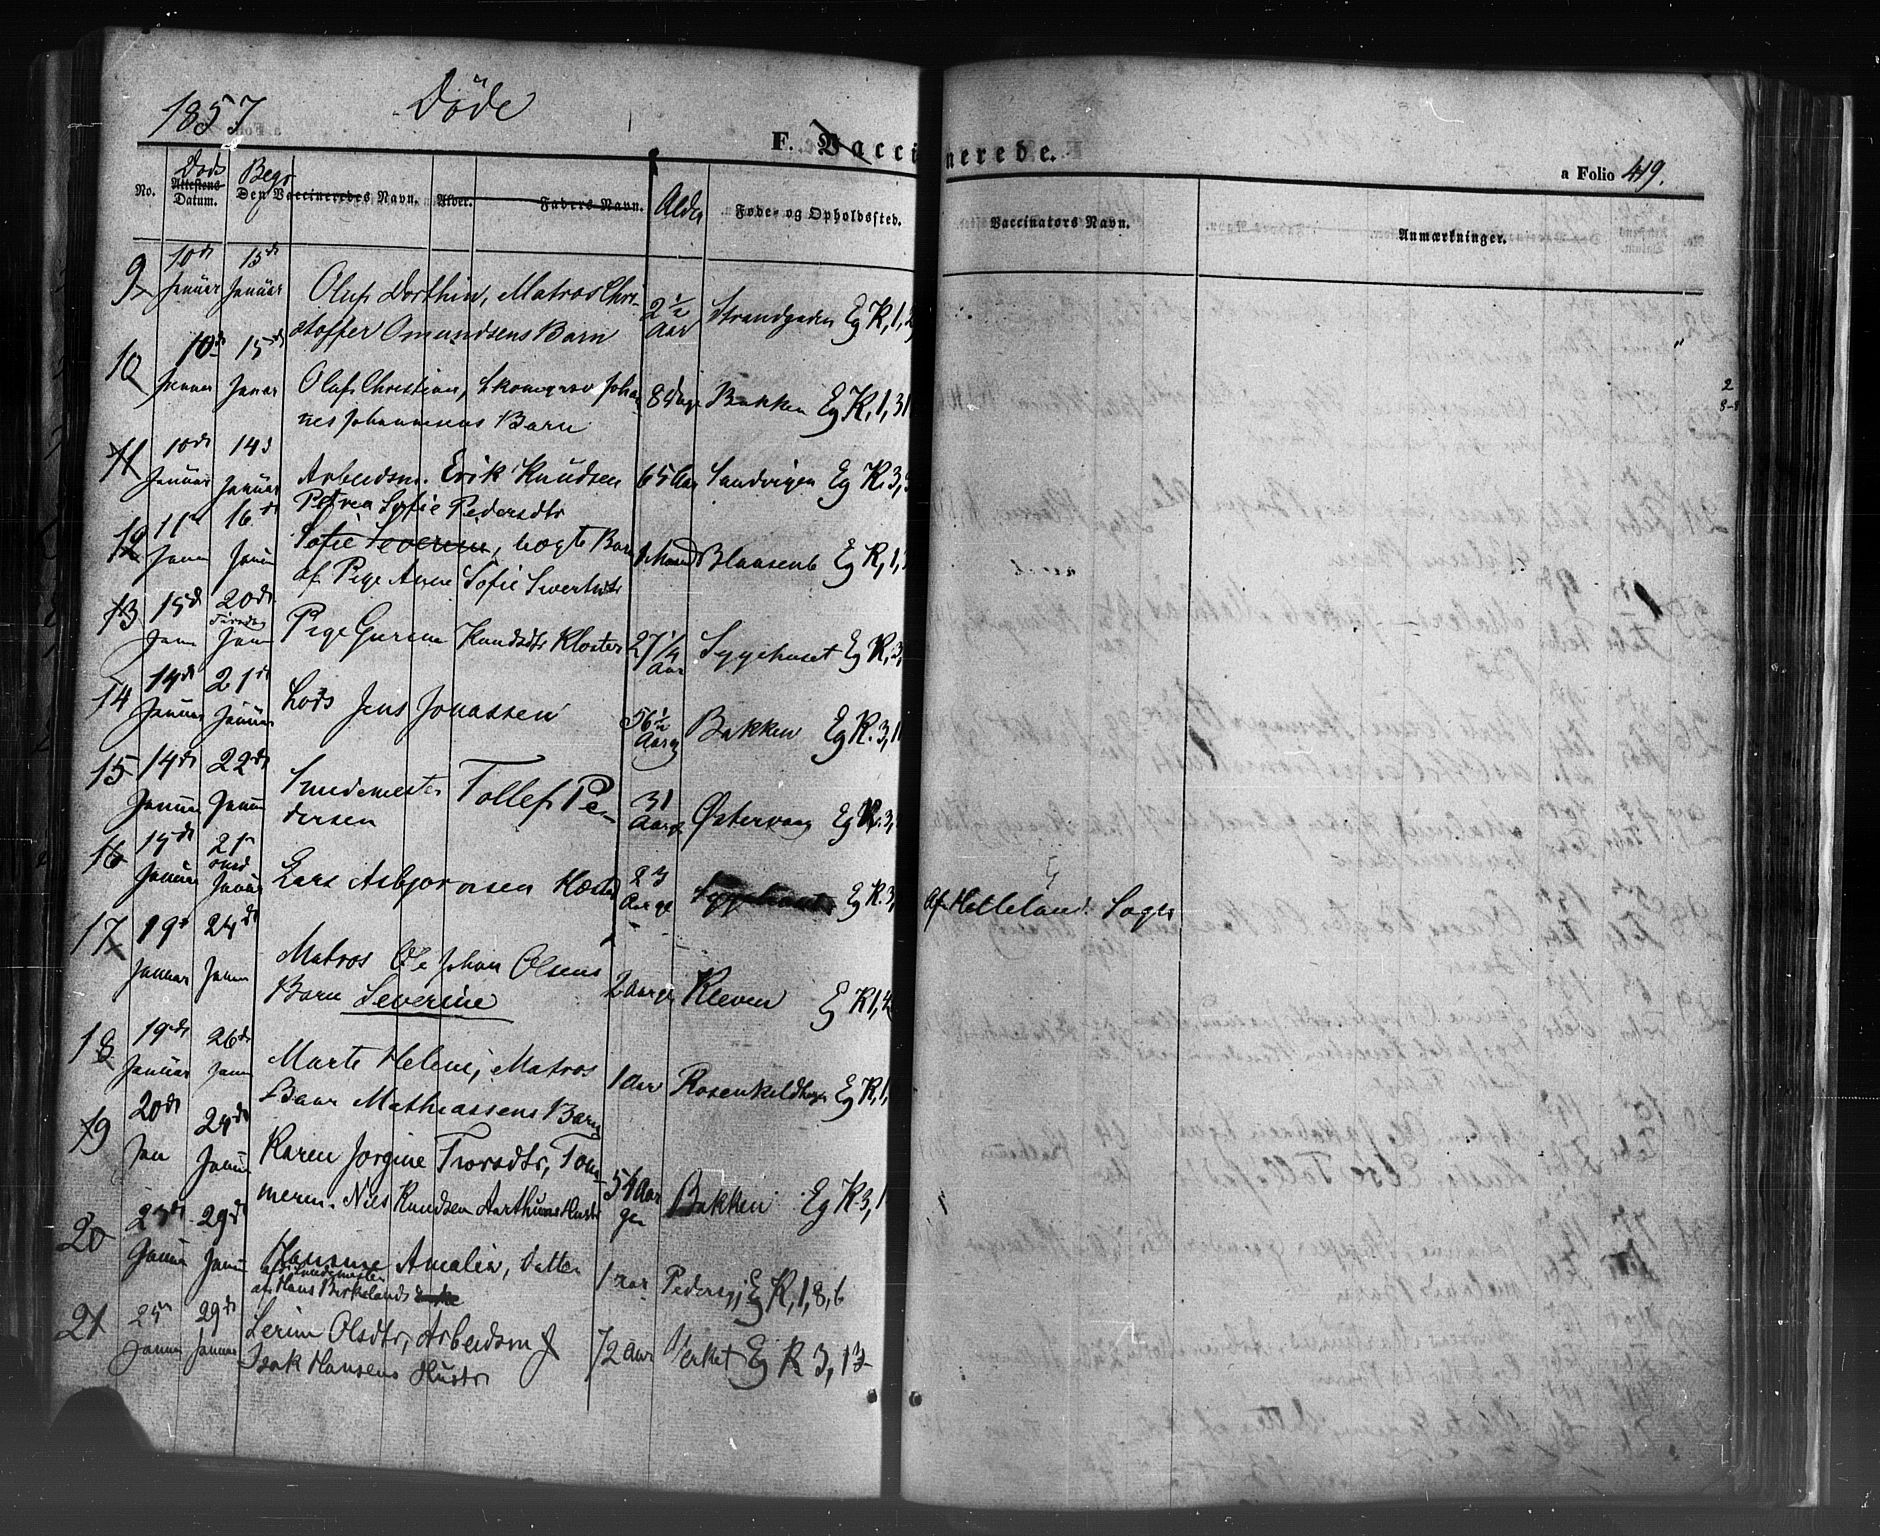 1857 Döde
F. Vaccinerede.
a Folio 419.
No. Döds Attestens Datum. Begr Den Vaccineredes Navn. Alder. Faders Navn. Alder Føde- og Opholdssted. Vaccinators Navn. Anmærkninger.
9 10de Januar 15de Januar Oluf Dorthin, Matros Chri-
stoffer Omundsens Barn 2 1/2 Aar Strandgaden Eg K, 1,
10 10de Januar 15de Januar Oluf Christian, Johan
nes Johannesens Barn 8 Dage Bakken Eg K, 1, 31
11 10de Januar 14d Januar Arbeidsm. Erik Knudsen 65 Aar Sandvigen Eg K. 3,
Petrea Sofie Pedersdtr
12 11te Janu 16de Janu Sofie Severine, uægte Barn
af Pige Anne Sofie Sivertsdtr 1 Maaned Blaasenb Eg K, 1,
13 15d Janu 20de Janu Pige Gurine Knudsdtr Kloster 27 1/4 Aar Sygehuset Eg K, 3,
14 14de Januar 21de Januar Lods Jens Jonassen 56 1/2 Aarg Bakken Eg K. 3, 1
15 14de Januar 22de Janu Smedemester Tollef Pe-
dersen 31 Aarg Østervaag Eg K. 3,
16 15de Januar 21de Januar Lars Asbjørnsen 23 Aarge Sygehuset Eg K. 3, Af Helleland Sogn
17 19d Januar 24de Janu Matros Ole Johan Olsens
Barn Severine 2 Aarge Kleven Eg K 1, 4
18 19de Januar 26de Janu Marte Helene, Matros
Baar Mathiassens Barn 1 Aar Rosenkildhagen Eg K, 1,
19 20de Jan 24de Janu Karen Jorgine Tvorsdtr, Tøm-
merm. Nils Knudsen Aarthuns Hustr 54 Aar gl Bakken Eg K 3, 1
20 23de Janu 29de Janu Hansine Amalia, Datter
af Smedemester
af Hans Birkelands 1 aar Pedersgj Eg K, 1, 8, 6
21 25de Janu 29de Januar Serine Olsdtr, Arbeidsm
Isak Hansens Hustr 72 Aar Verket Eg K 3, 13